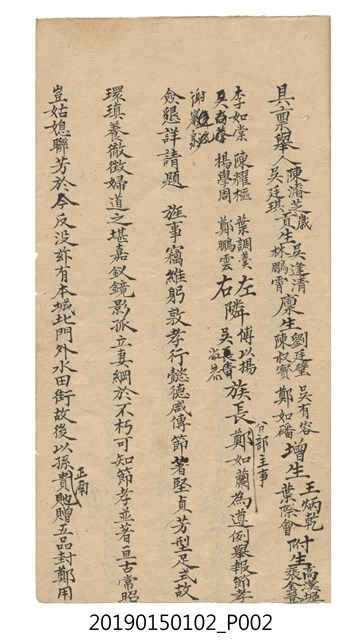 具禀舉人陳濬芝歲貢生吳逢清廩生劉廷璧 吳有容增生王炳乾附生高漢墀
吳廷琪 林鵬霄 陳叔寶 鄭如磻 葉際會 張金聲
李如棠 陳耀樞 葉調羹左隣傅以揚族長鄭如蘭為遵例舉報節孝
楊學周 鄭鵬雲右 分部主事
僉懇詳請題 旌事竊維躬敦孝行懿德咸傳節著堅貞芳型足式故
環瑱養徹徵婦道之堪嘉釵鏡影孤立妻綱於不朽可知節孝並著亘古常昭
豈姑媳聯芳於今反没玆有本城北門外水田街故後以孫貴貤贈正南五品封鄭用
20190150102_P002